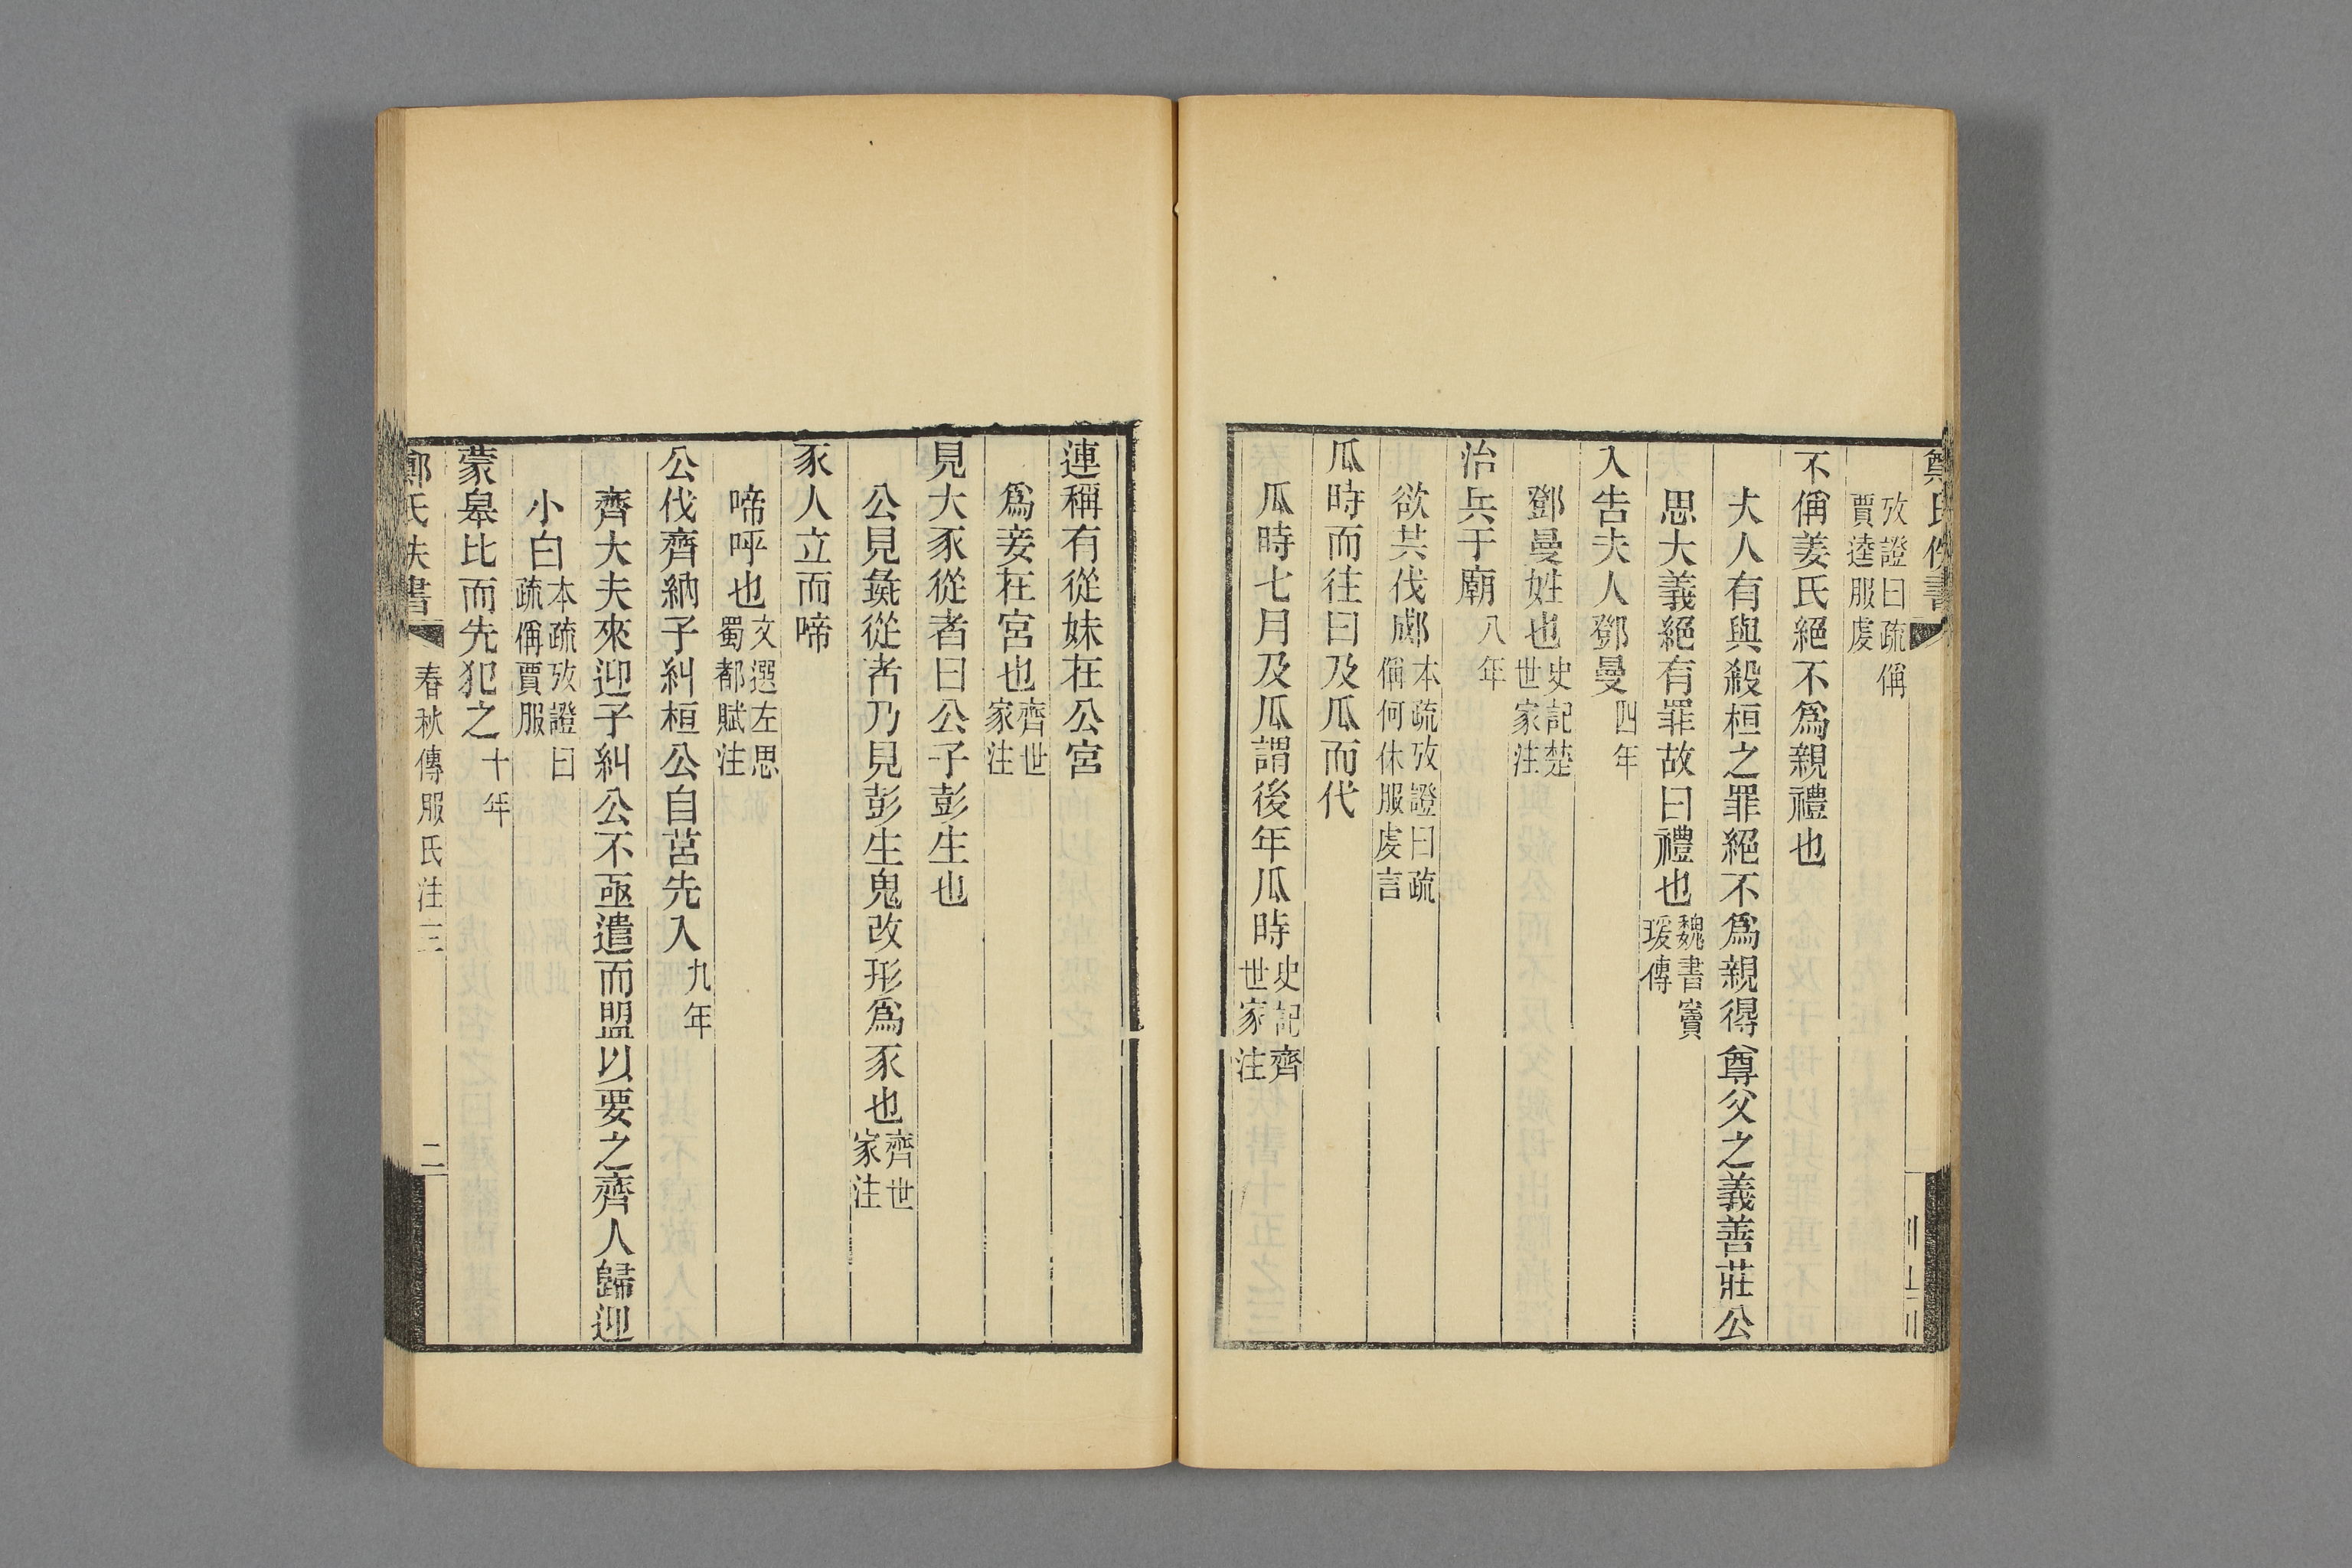 鄭氏佚書
攷證曰疏偁
賈逵服虔
不偁姜氏絕不爲親禮也
夫人有與殺桓之罪絕不爲親得尊父之義善莊公
思大義絕有罪故曰禮也魏書竇
瑗傳
入告夫人鄧曼四年
鄧曼姓也史記楚
世家注
治兵于廟八年
欲共伐郕本疏攷證曰疏
偁何休服虔言
瓜時而往曰及瓜而代
瓜時七月及瓜謂後年瓜時史記齊
世家注
連稱有從妹在公宮
爲妾在宮也齊世
家注
見大豕從者曰公子彭生也
公見彘從者乃見彭生鬼改形爲豕也齊世
家注
豕人立而啼
啼呼也文選左思
蜀都賦注
公伐齊納子糾桓公自莒先入九年
齊大夫來迎子糾公不亟遣而盟以要之齊人歸迎
小白本疏攷證曰
疏偁賈服
蒙皋比而先犯之十年
鄭氏佚書
春秋傳服氏注三
二